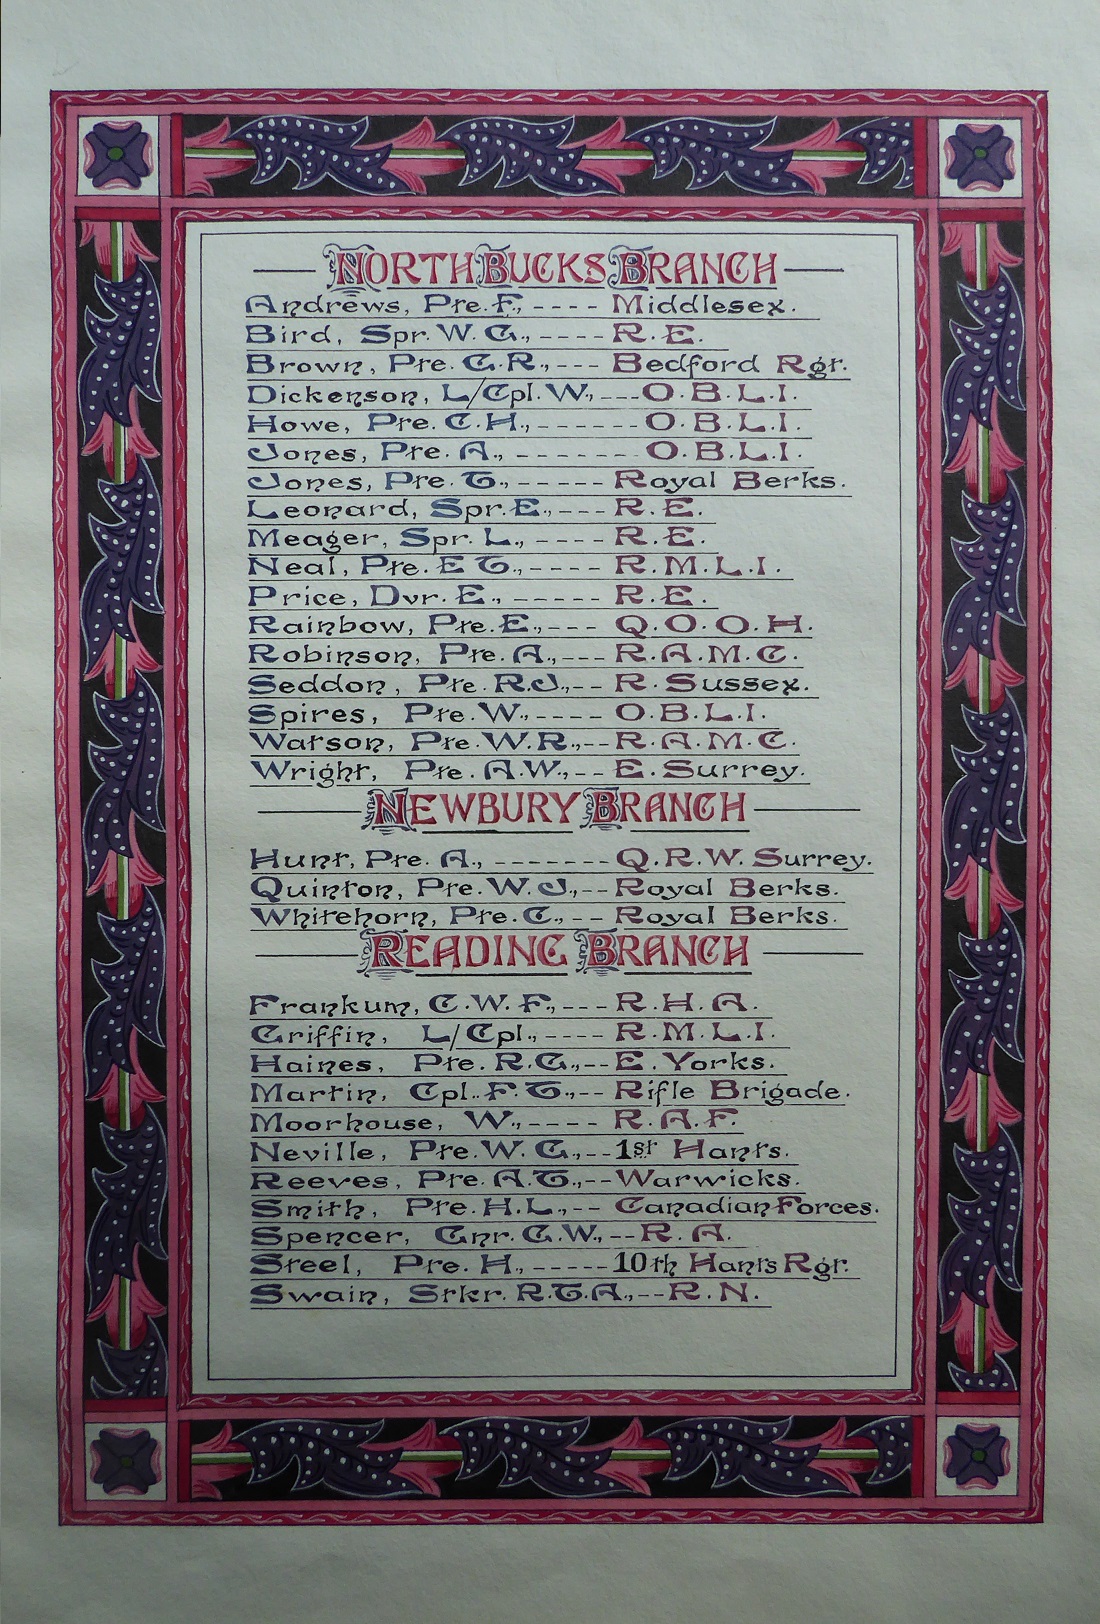 NORTH BUCKS BRANCH
Andrews, Pte. F., ---- Middlesex.
Bird, Spr. W. G., ---- R.E.
Brown, Pte. G.R., --- Bedford Rgt.
Dickenson, L/Cpl. W., --- O.B.L.I.
Howe, Pte. C.H., ------ O.B.L.I.
Jones, Pte. A., ------- O.B.L.I.
Jones, Pte. T., ----- Royal Berks.
Leonard, Spr. E., --- R.E.
Meager, Spr. L., ---- R.E.
Neal, Pte. E T., ---- R.M.L.I.
Price, Dvr. E., ----- R.E.
Rainbow, Pte. E., --- Q.O.O.H.
Robinson, Pte. A., --- R.A.M.C.
Seddon, Pte. R.J., -- R. Sussex.
Spires, Pte. W., ---- O.B.L.I.
Watson, Pte. W.R., -- R.A.M.C.
Wright, Pte. A.W., -- E. Surrey.
NEWBURY BRANCH
Hunt, Pte. A., ------- Q.R.W. Surrey.
Quinton, Pte. W.J., -- Royal Berks.
Whitehorn, Pte. C., -- Royal Berks.
READING BRANCH
Frankum, C.W.F., --- R.H.A.
Griffin, L/Cpl., ---- R.M.L.I.
Haines, Pte. R.G., -- E. Yorks.
Martin, Cpl. F.T., -- Rifle Brigade.
Moorhouse, W., ---- R.A.F.
Neville, Pte. W. G., -- 1st Hants.
Reeves, Pte. A.T., -- Warwicks.
Smith, Pte. H.L., -- Canadian Forces.
Spencer, Gnr. G.W., -- R.A.
Steel, Pte. H., ----- 10th Hants Rgt.
Swain, Stkr. R.T.A., -- R.N.